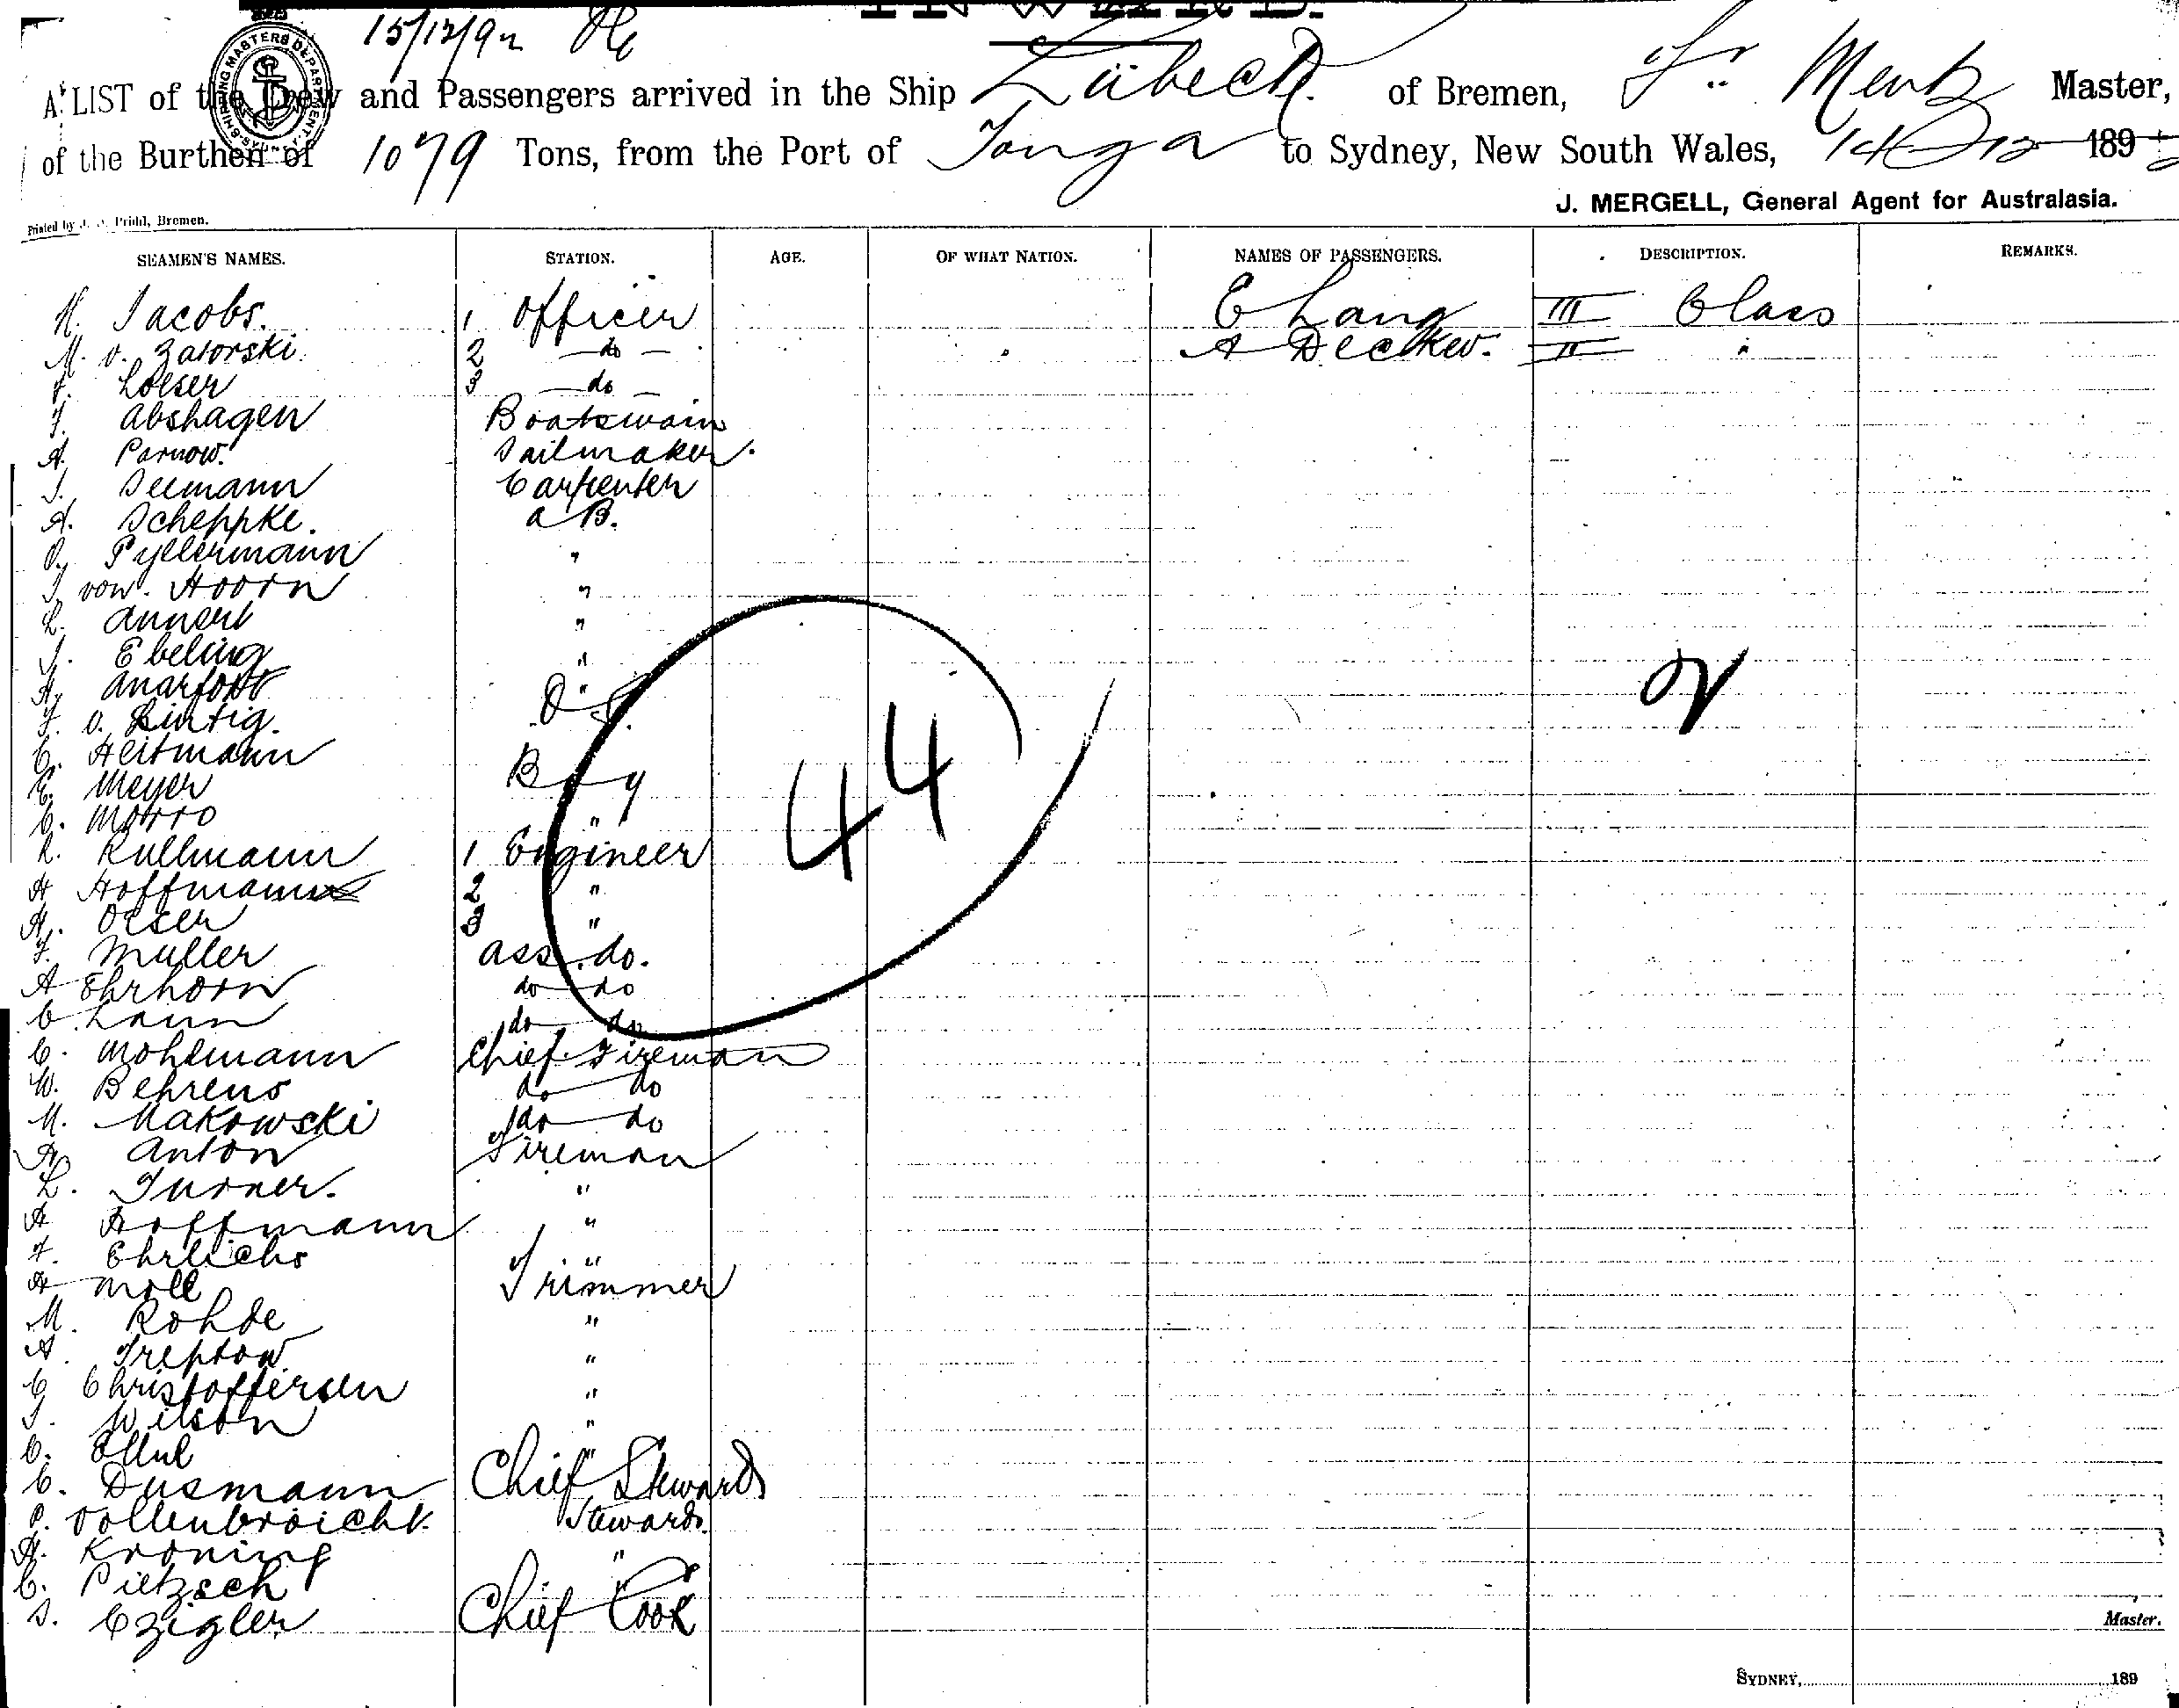 INWARD.
15/12/92
A LIST of the Crew and Passengers arrived in the Ship Lübeck of Bremen, Fr. Mentz Master,
of the Burthen of 1079 Tons, from the Port of Tonga to Sydney, New South Wales, 14/12 1892
J. MERGELL, General Agent for Australasia.
Printed by J. Pridhl, Bremen.
SEAMEN'S NAMES. STATION. AGE. OF WHAT NATION. NAMES OF PASSENGERS. DESCRIPTION. REMARKS.
H. Jacobs. 1 Officer E Lang III Class
M. v. Zatorski. 2 do A Decker. II "
F. Loeser 3 do
F. Abshagen Boatswain
A. Parnow. Sailmaker.
J. Seemann Carpenter
A. Scheppke. A B.
O. Pyllermann "
J. von Hoorn "
L. Annert "
J. Ebeling "
A. "
F. v. Lintig. O S.
C. Heitmann
E. Meyer Boy
C. Morro "
R. Kullmann 1 Engineer
H Hoffmann 2 "
H. Oeser 3 "
F. Muller Ass. do.
A Ehrhorn do do
C. Laun do do
C. Mohlmann Chief Fireman
W. Behrens do do
M. Makowski do do
A. Anton Fireman
L. Turner. "
A Hoffmann "
F. Ehrlichs "
H Moll Trimmer
M. Rohde "
A. Treptow "
C Christoffersen "
J. Wilson "
C. Ellul "
C. Dusmann Chief Steward
P. Vollenbroicht Steward.
H. Kroning "
C. Pietzsch "
S. Czigler Chief Cook
44
2
Master.
SYDNEY, 189